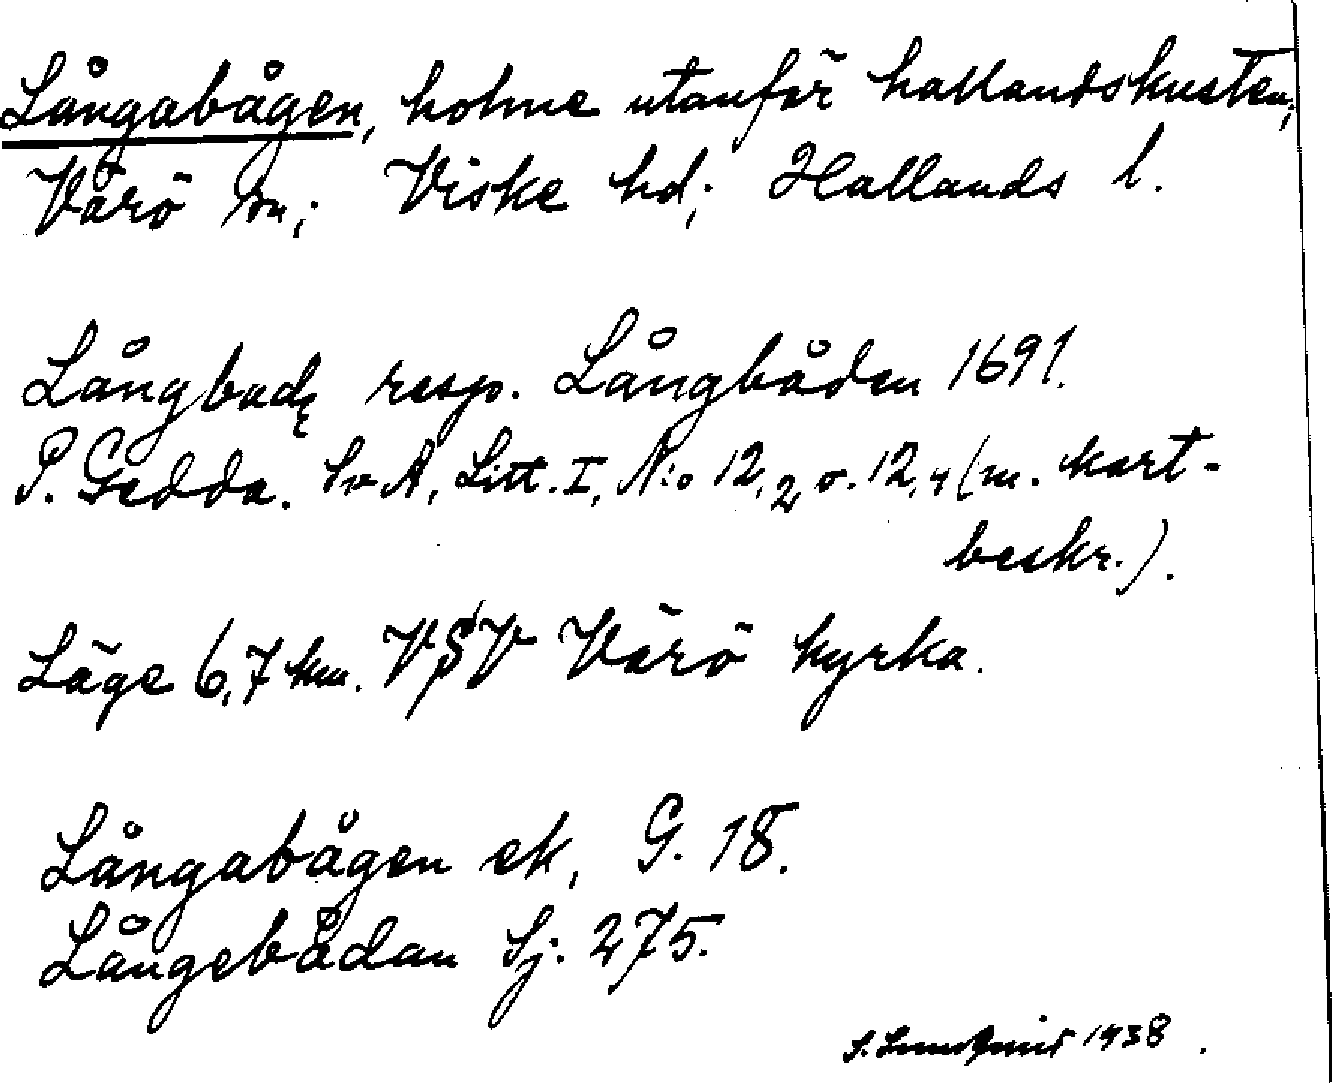 Långabågen, holme utanför hallandskusten,
Värö sn; Viske hd; Hallands l.
Långbadę resp. Långbåden 1691.
P. Gedda. Sv A, Litt. I, N:o 12,2 o. 12,4 (m. kart-
beskr.).
Läge 6,7 km. VSV Värö kyrka.
Långabågen ek, G. 18.
Långebådan Sj. 275.
S. Lundqvist 1938.